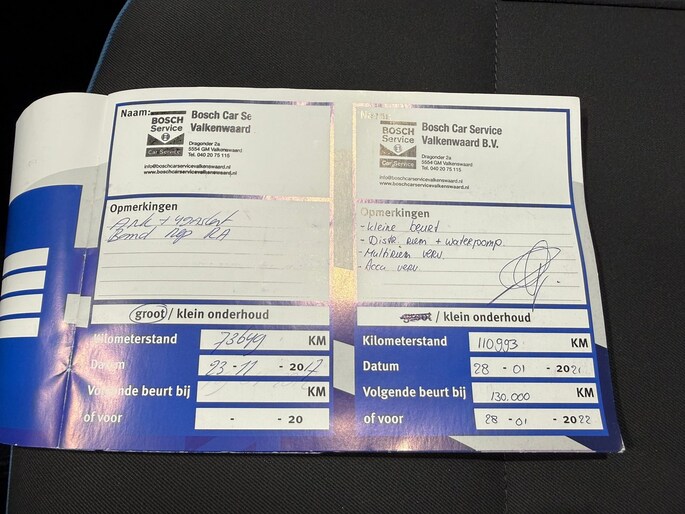 Naam:
BOSCH
Service
Car Service
Bosch Car Se
Valkenswaard
Dragonder 2a
5554 GM Valkenswaard
Tel. 040 20 75 115
info@boschcarservicevalkenswaard.nl
www.boschcarservicevalkenswaard.nl
Opmerkingen
Band rep RA
groot / klein onderhoud
Kilometerstand 73699 KM
Datum 23-11-2017
Volgende beurt bij KM
of voor - - 20
Naam:
BOSCH
Service
Car Service
Bosch Car Service
Valkenswaard B.V.
Dragonder 2a
5554 GM Valkenswaard
Tel. 040 20 75 115
info@boschcarservicevalkenswaard.nl
www.boschcarservicevalkenswaard.nl
Opmerkingen
- kleine beurt
- Distr riem + waterpomp
- Multiriem verv.
- Accu verv.
groot / klein onderhoud
Kilometerstand 110.993 KM
Datum 28-01-2021
Volgende beurt bij 130.000 KM
of voor 28-01-2022